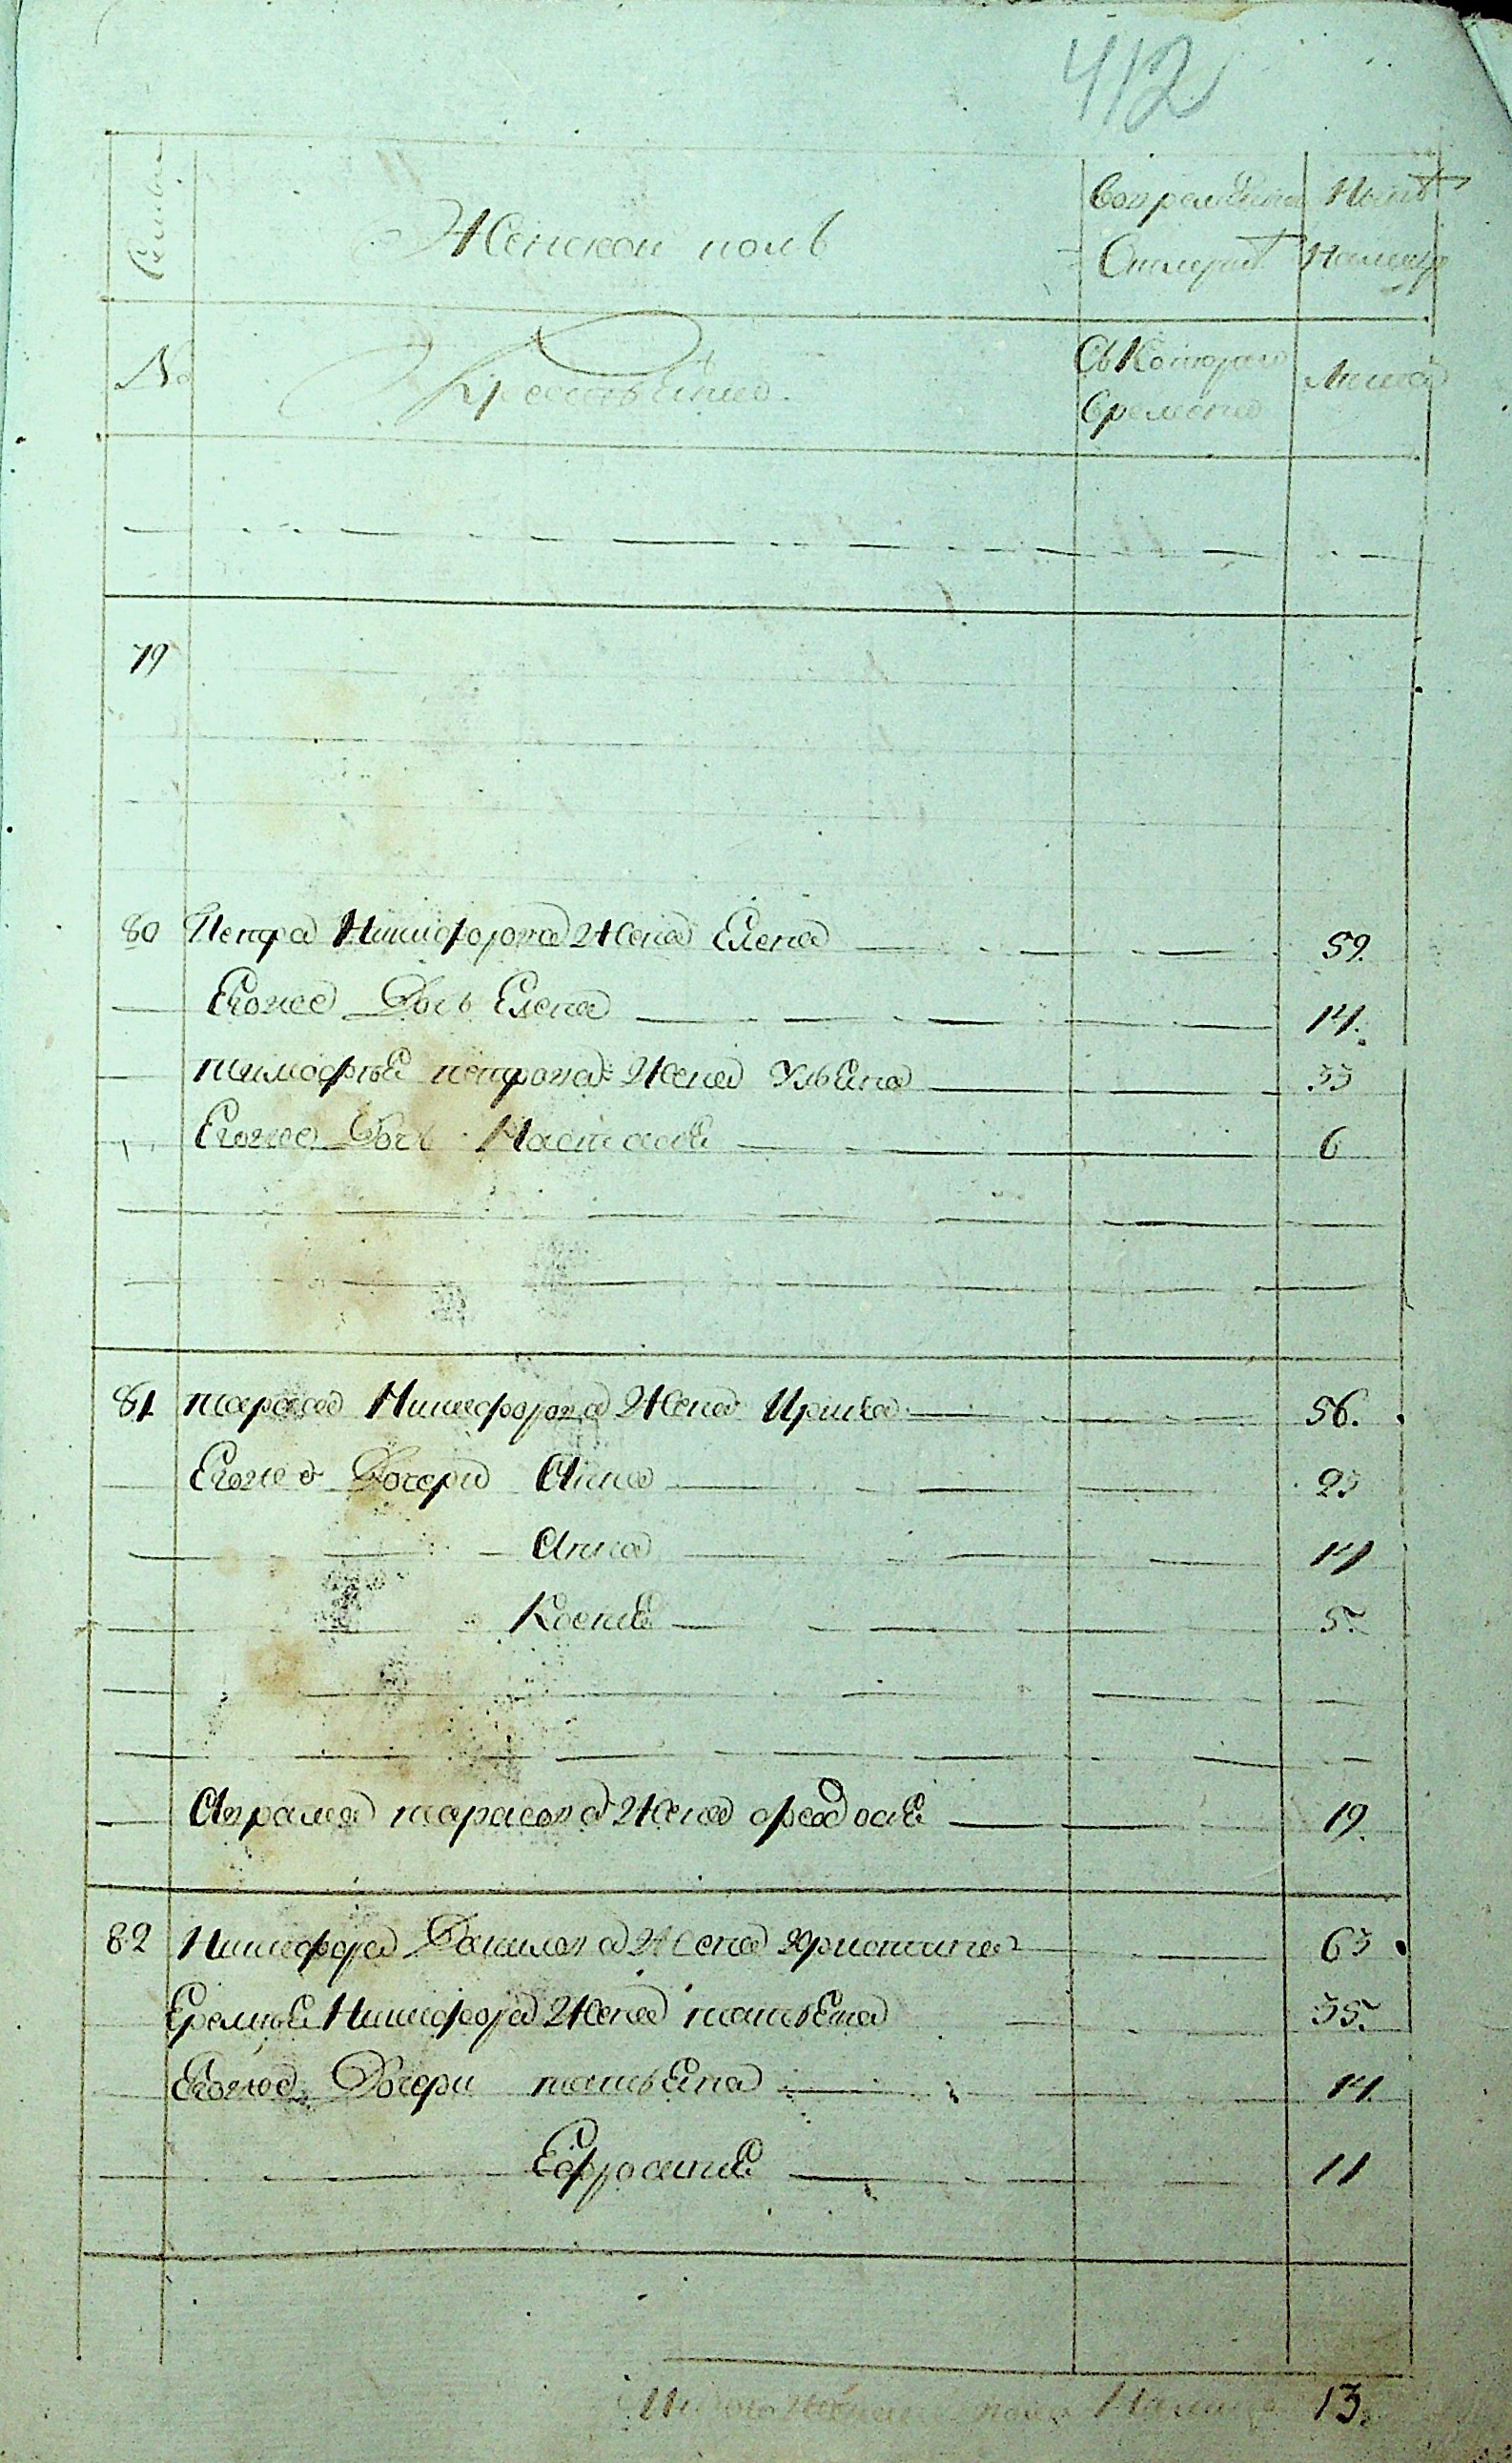 412
Семьи
Женской полъ
Во временной Ныне
Отлучке На лицо
№ Крестьяне
Съ котораго Лета
времени
79
80 Петра Никифорова жена Елена 59.
Егоже Дочь Елена 14.
тимофея петрова жена Ульяна 33
Егоже Дочь Настасья 6
81 тараса Никифорова жена Ирина 56.
Егоже Дочери Анна 23
Анна 14
Ксения 5.
Аврама тарасова жена Федосья 19.
82 Никифора Данилова жена Христина 63
Еремея Никифора жена татьяна 35.
Егоже Дочери татьяна 14.
Ефросиния 11
Итого женска пола На лицо 13.